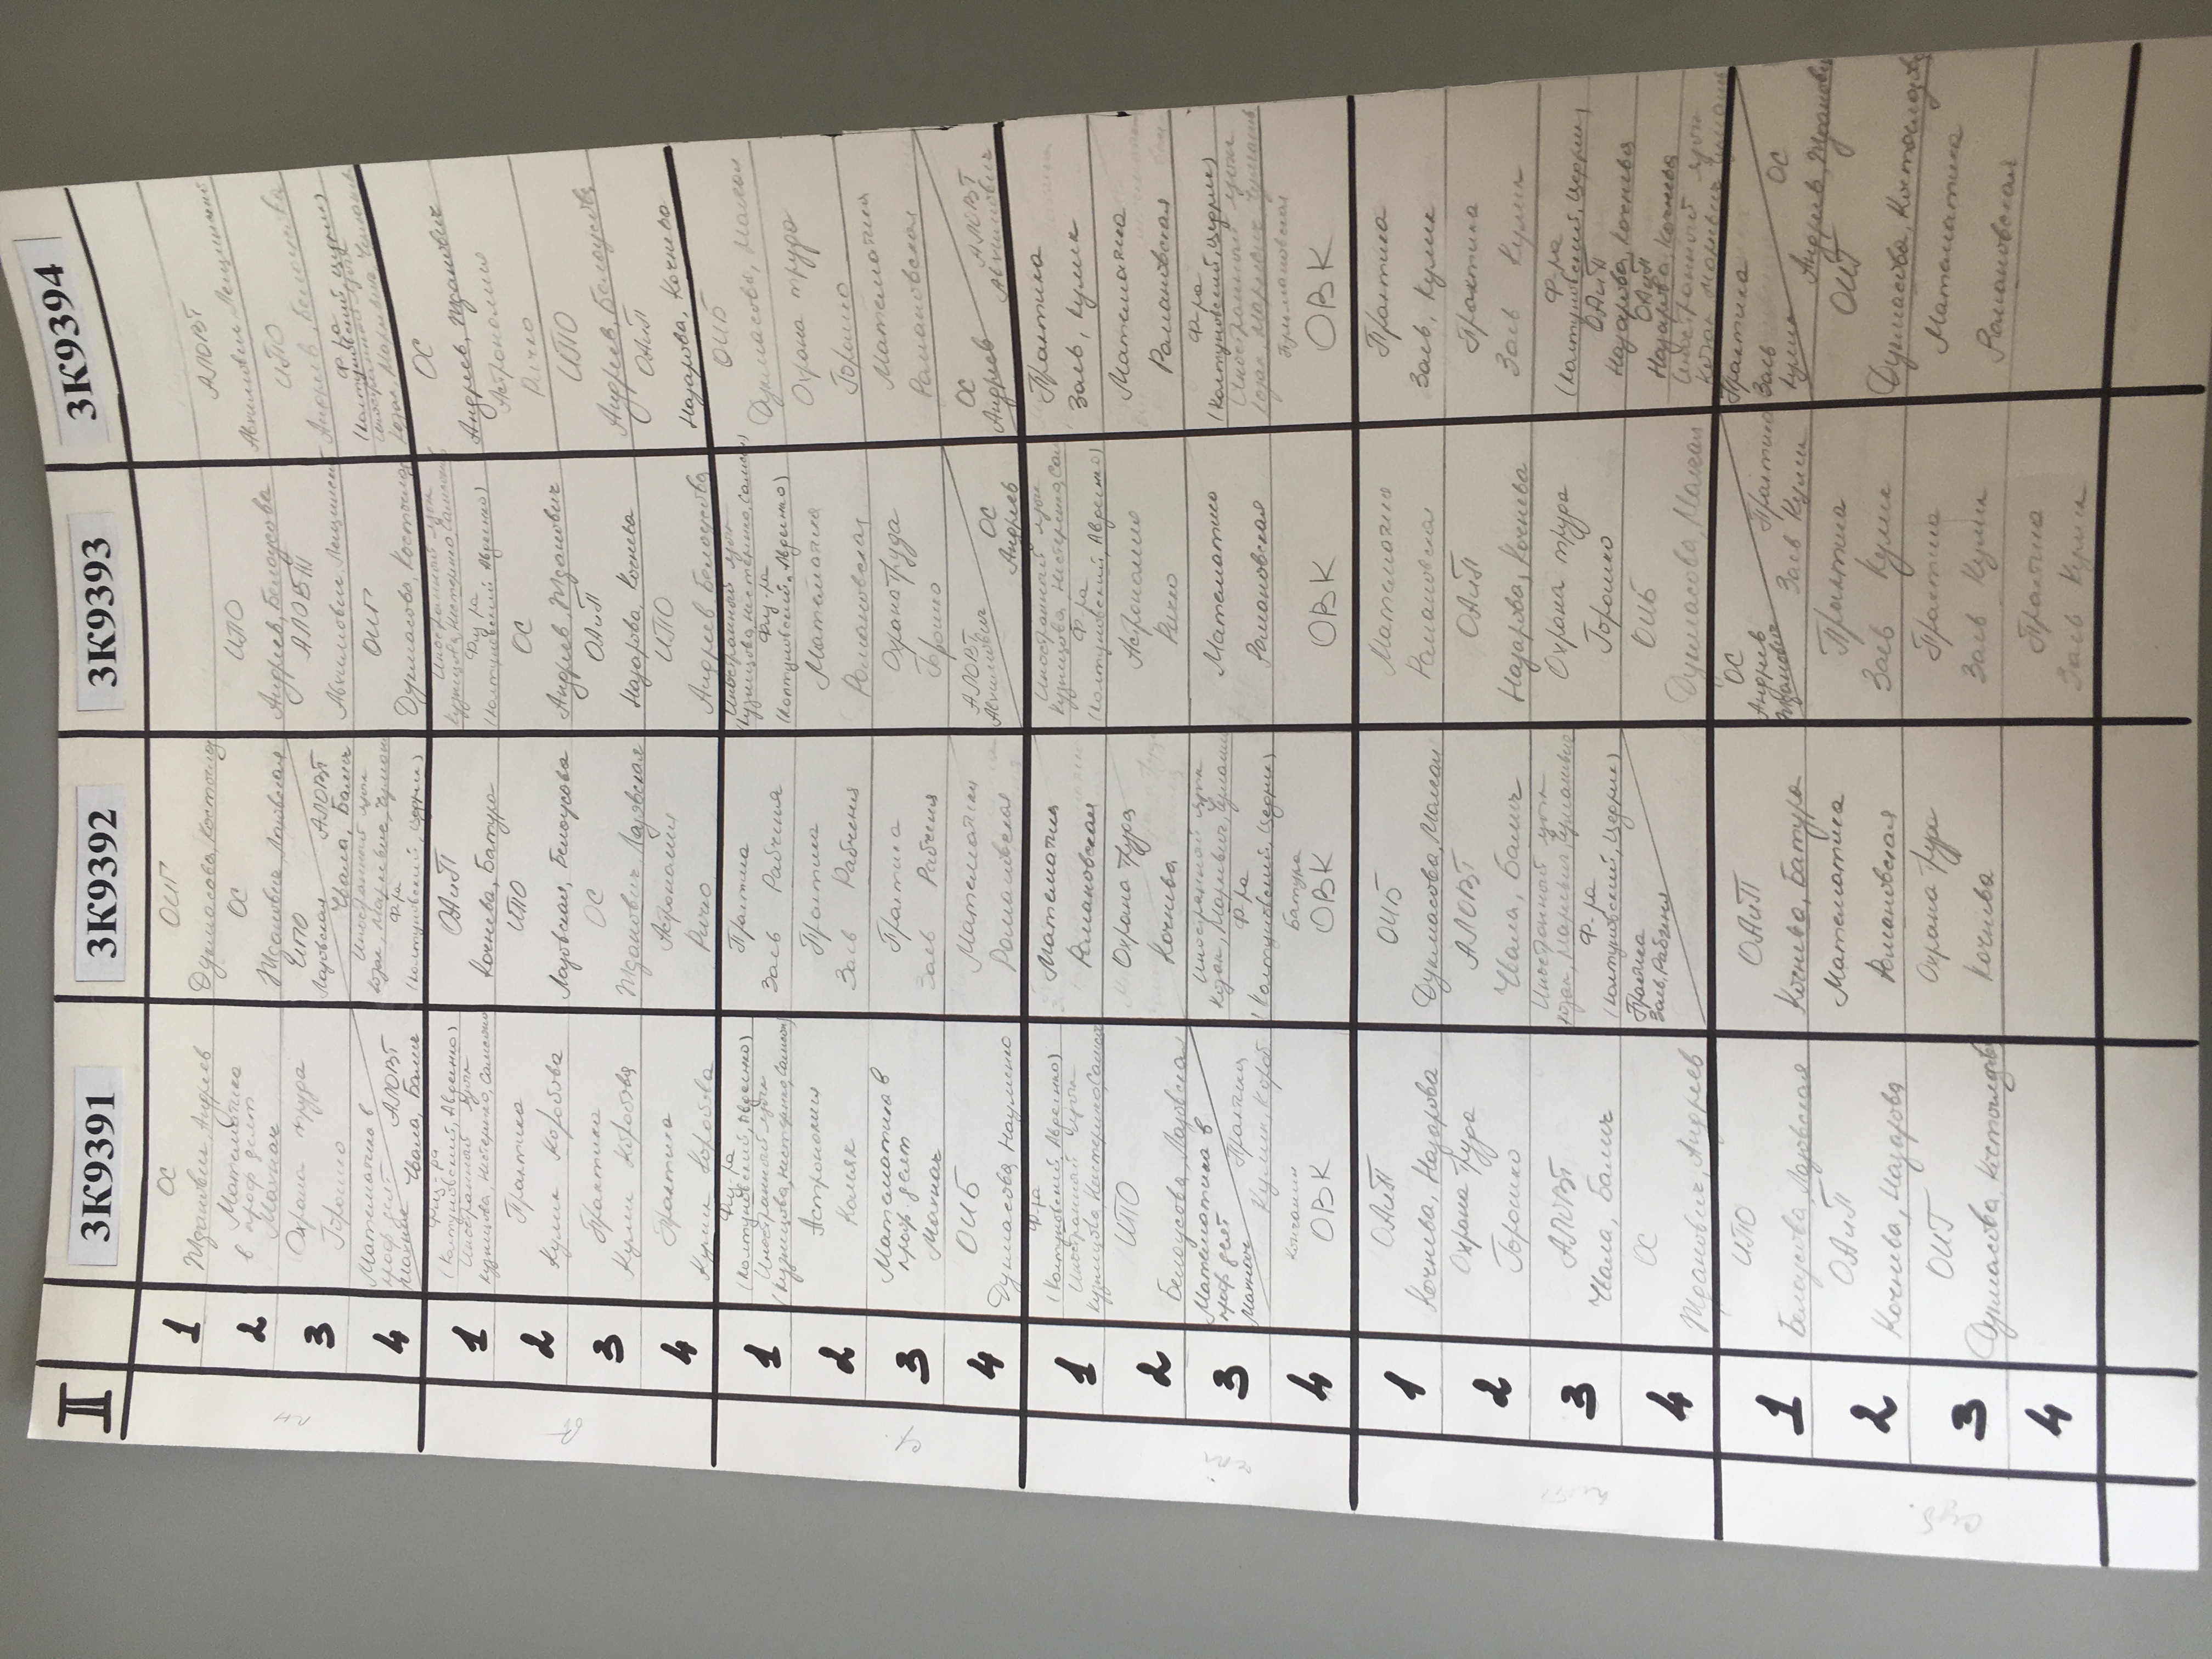 II
3К9391
3К9392
3К9393
3К9394
пн
1
ОС
Жданович, Андреев
ОИГ
Дукмасова, Костюглод
2
Математика
в проф деят
Махнач
ОС
Жданович, Лазовская
ИПО
Андреев, Белоусова
АЛОВТ
Авхимович Лещинский
3
Охрана труда
Горошко
ИПО
Лазовская
АЛОВТ
Чвала, Балич
АЛОВТ
Авхимович, Лещинский
ИПО
Андреев, Белоусова
4
Математика в
проф деят
Махнач
АЛОВТ
Чвала, Балич
Иностранный язык
Козак, Маркевич,
Ф-ра
(Колтуновский, Цедрик)
ОИГ
Дукмасова, Костюглод
Ф-ра
(Колтуновский, Цедрик)
Иностранный язык
Козак, Маркевич,
вт
1
Физ-ра
(Колтуновский, Авдеенко)
Иностранный язык
Кузнецова, Нестеренко,
ОАиП
Кочнева, Батура
Иностранный язык
Кузнецова, Нестеренко,
Физ-ра
(Колтуновский Авдеенко)
ОС
Андреев, Жданович
2
Практика
Кулик Коробова
ИПО
Лазовская, Белоусова
ОС
Андреев, Жданович
Астрономия
Ричко
3
Практика
Кулик Коробова
ОС
Жданович, Лазовская
ОАиП
Назарова, Кочнева
ИПО
Андреев, Белоусова
4
Практика
Кулик Коробова
Астрономия
Ричко
ИПО
Андреев Белоусова
ОАиП
Назарова, Кочнева
ср.
1
Физ-ра
(Колтуновский, Авдеенко)
Иностранный язык
(Кузнецова, Нестеренко,
Практика
Заяв Рабченя
Иностранный язык
(Кузнецова, Нестеренко,
Физ-ра
(Колтуновский, Авдеенко)
ОИБ
Дукмасова,
2
Астрономия
Практика
Заяв Рабченя
Математика
Романовская
Охрана труда
Горошко
3
Математика в
проф. деят
Махнач
Практика
Заяв Рабченя
Охрана труда
Горошко
Математика
Романовская
4
ОИБ
Дукмасова, Науменко
Математика
Романовская
АЛОВТ
Авхимович
ОС
Андреев
ОС
Андреев
АЛОВТ
Авхимович
1
Ф-ра
(Колтуновский, Авдеенко)
Иностранный язык
Кузнецова, Нестеренко,
Математика
Романовская
Иностранный язык
Кузнецова, Нестеренко,
Ф-ра
(Колтуновский, Авдеенко)
Практика
Заяв, Кулик
2
ИПО
Белоусова, Лазовская
Охрана труда
Кочнева
Астрономия
Ричко
Математика
Романовская
3
Математика в
проф деят
Махнач
Практика
Кулик, Короб
Иностранный язык
Козак, Маркевич,
Ф-ра
(Колтуновский, Цедрик)
Математика
Романовская
Ф-ра
(Колтуновский, Цедрик)
Иностранный язык
Козак, Маркевич
4
Кончанин
ОВК
Батура
ОВК
ОВК
ОВК
1
ОАиП
Кочнева, Назарова
ОИБ
Дукмасова,
Математика
Романовская
Практика
Заяв, Кулик
2
Охрана труда
Горошко
АЛОВТ
Чвала, Балич
ОАиП
Назарова, Кочнева
Практика
Заяв Кулик
3
АЛОВТ
Чвала, Балич
Иностранный язык
Козак, Маркевич,
Ф-ра
(Колтуновский, Цедрик)
Охрана труда
Горошко
Ф-ра
(Колтуновский, Цедрик)
ОАиП
Назарова, Кочнева
4
ОС
Жданович, Андреев
Практика
Заяв, Рабченя
ОИБ
Дукмасова,
ОАиП
Назарова, Кочнева
Иностранный язык
Козак Маркевич
суб.
1
ИПО
Белоусова, Лазовская
ОАиП
Кочнева, Батура
ОС
Андреев
Жданович
Практика
Заяв Кулик
Практика
Заяв
Кулик
ОС
Андреев, Жданович
2
ОАиП
Кочнева, Назарова
Математика
Романовская
Практика
Заяв Кулик
ОИГ
Дукмасова, Костюглодова
3
ОИГ
Дукмасова, Костюглодов
Охрана труда
Кочнева
Практика
Заяв Кулик
Математика
Романовская
4
Практика
Заяв Кулик